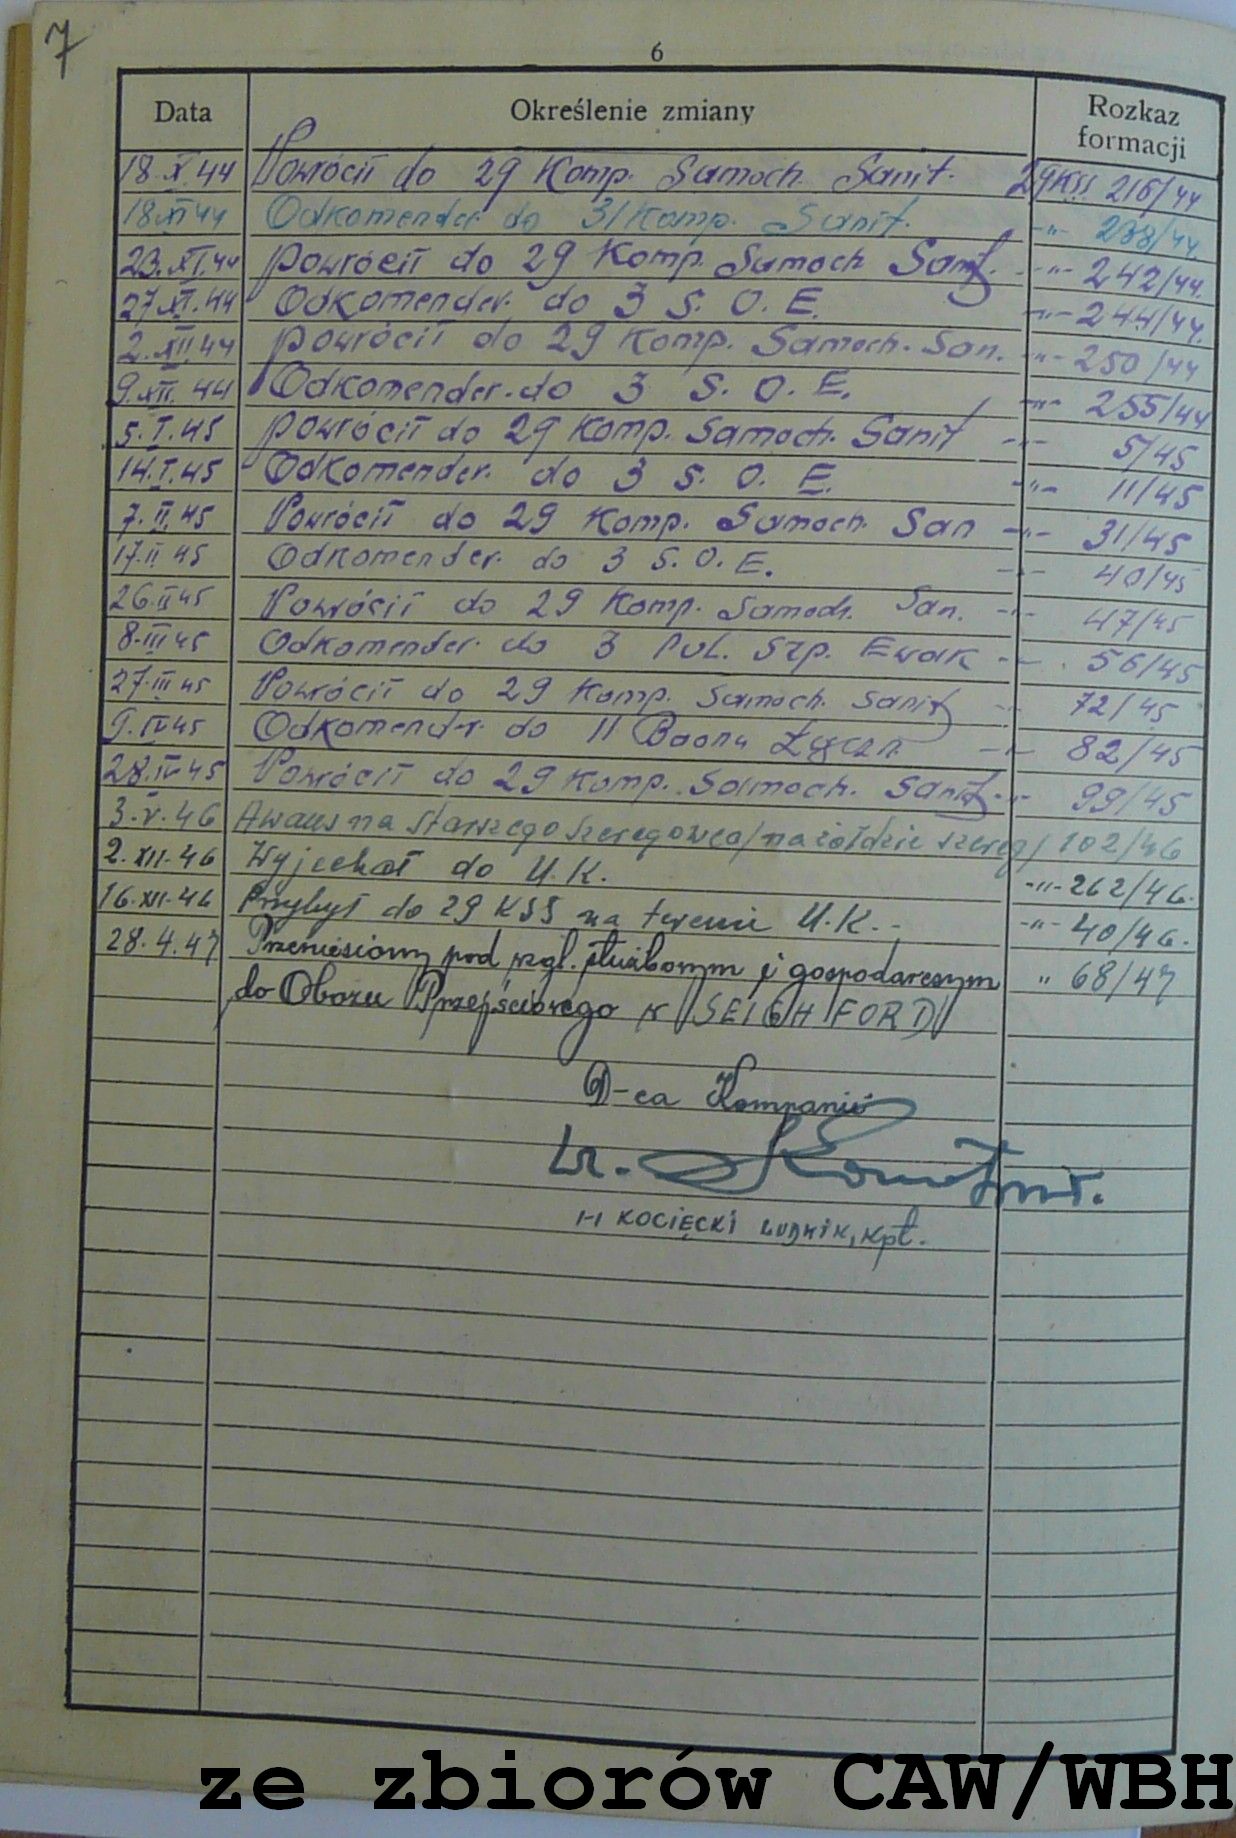 7
6
Data Określenie zmiany Rozkaz formacji
18.X.44 Powrócił do 29 Komp. Samoch. Sanit. 29KSS 216/44
18.XI 44 Odkomender do 31 Komp. Sanit. -"- 238/44.
23.XI.44 powrócił do 29 Komp. Samoch Sanit. -"- 242/44.
27.XI.44 Odkomender. do 3 S. O. E. -"- 244/44.
2.XII.44 powrócił do 29 Komp. Samoch. San. -"- 250/44
9.XII.44 Odkomender. do 3 S. O. E. -"- 255/44
5.I.45 powrócił do 29 Komp. Samoch. Sanit -"- 5/45
14.I.45 Odkomender. do 3 S. O. E. -"- 11/45
7.II.45 Powrócił do 29 Komp. Samoch. San -"- 31/45
17.II 45 Odkomender. do 3 S. O. E. -"- 40/45
26.II 45 Powrócił do 29 Komp. Samoch. San. -"- 47/45
8.III 45 Odkomender. do 3 Pol. Szp. Ewak -"- 56/45
27.III 45 Powrócił do 29 Komp. Samoch. Sanit -"- 72/45
9.IV 45 Odkomender. do 11 Baonu Łączn. -"- 82/45
28.IV.45 Powrócił do 29 Komp. Samoch. Sanit. -"- 99/45
3.V.46 Awans na starszego szeregowca /na żołdzie szereg/ 102/46
2.XII.46 Wyjechał do U.K. -"- 262/46.
16.XII.46 Przybył do 29 KSS na terenie U.K. -"- 40/46.
28.4.47 Przeniesiony pod wzgl. służbowym i gospodarczym " 68/47
do Obozu Przejściowego K/SEIGHFORD/
D-ca Kompanii
/-/ KOCIĘCKI LUDWIK, kpt.
ze zbiorów CAW/WBH